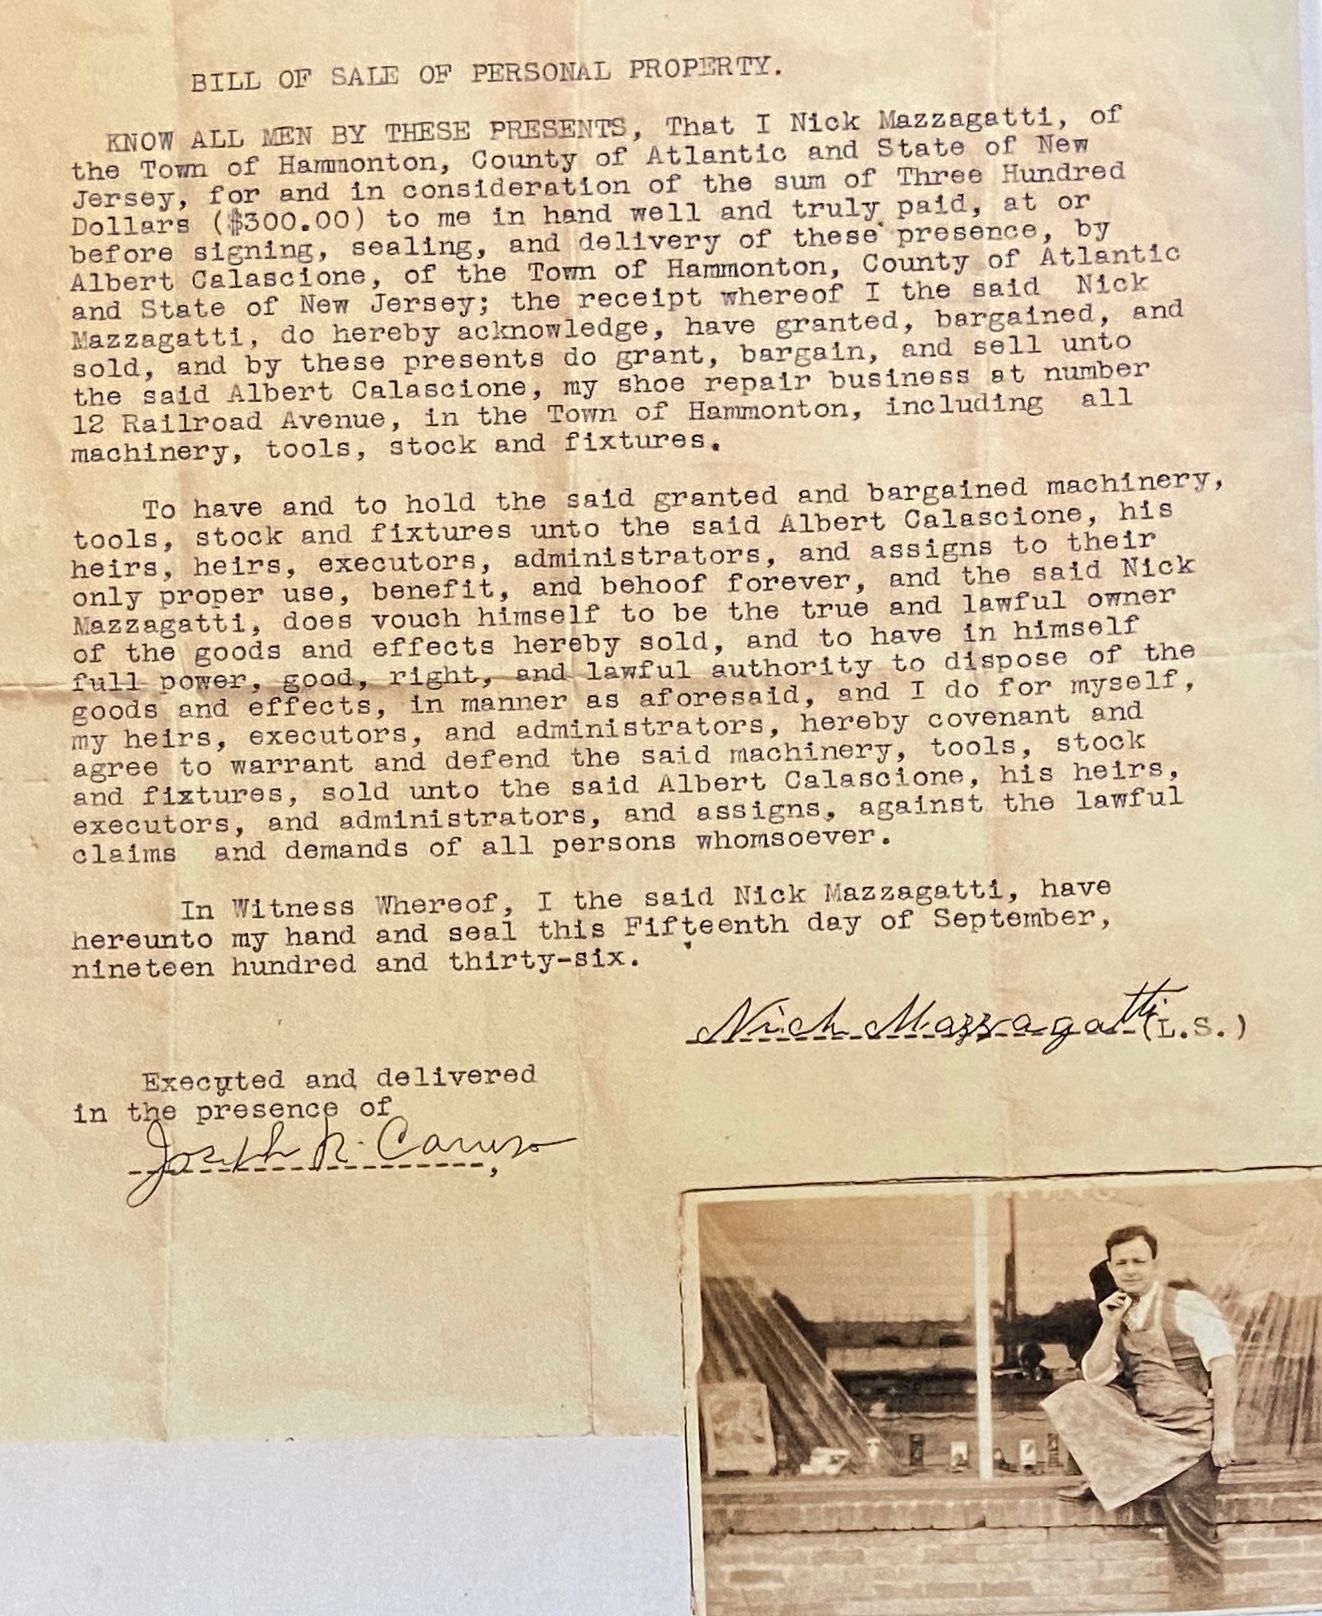 BILL OF SALE OF PERSONAL PROPERTY.
KNOW ALL MEN BY THESE PRESENTS, That I Nick Mazzagatti, of
the Town of Hammonton, County of Atlantic and State of New
Jersey, for and in consideration of the sum of Three Hundred
Dollars ($300.00) to me in hand well and truly paid, at or
before signing, sealing, and delivery of these presence, by
Albert Calascione, of the Town of Hammonton, County of Atlantic
and State of New Jersey; the receipt whereof I the said Nick
Mazzagatti, do hereby acknowledge, have granted, bargained, and
sold, and by these presents do grant, bargain, and sell unto
the said Albert Calascione, my shoe repair business at number
12 Railroad Avenue, in the Town of Hammonton, including all
machinery, tools, stock and fixtures.
To have and to hold the said granted and bargained machinery,
tools, stock and fixtures unto the said Albert Calascione, his
heirs, heirs, executors, administrators, and assigns to their
only proper use, benefit, and behoof forever, and the said Nick
Mazzagatti, does vouch himself to be the true and lawful owner
of the goods and effects hereby sold, and to have in himself
full power, good, right, and lawful authority to dispose of the
goods and effects, in manner as aforesaid, and I do for myself,
my heirs, executors, and administrators, hereby covenant and
agree to warrant and defend the said machinery, tools, stock
and fixtures, sold unto the said Albert Calascione, his heirs,
executors, and administrators, and assigns, against the lawful
claims and demands of all persons whomsoever.
In Witness Whereof, I the said Nick Mazzagatti, have
hereunto my hand and seal this Fifteenth day of September,
nineteen hundred and thirty-six.
Nick Mazzagatti (L.S.)
Executed and delivered
in the presence of
Joseph N. Caruso,